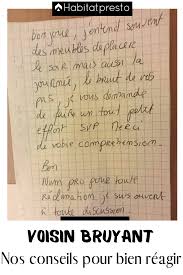 Habitatpresto
bonjour, j'entend souvent
des meubles deplacer
le soir mais aussi la
journée, le bruit de vos
pas, je vous demande
de faire un tout petit
effort SVP Merci
de votre comprehension.
Bon
Num pro pour toute
réclamation je suis ouvert
à toute discussion.
VOISIN BRUYANT
Nos conseils pour bien réagir